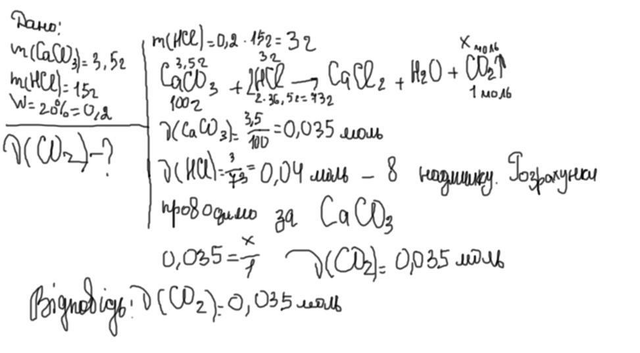 Дано:
m(CaCO₃)=3,5г
m(HCl)=15г
W=20%=0,2
ν(CO₂)-?
m(HCl)=0,2·15г=3г
3,5г 3г x моль
CaCO₃ + 2HCl → CaCl₂ + H₂O + CO₂↑
100г 2·36,5г=73г 1 моль
ν(CaCO₃)=3,5/100=0,035 моль
ν(HCl)=3/73=0,04 моль – в надлишку. Розрахунки
проводимо за CaCO₃
0,035=x/1 ν(CO₂)=0,035 моль
Відповідь: ν(CO₂)=0,035 моль